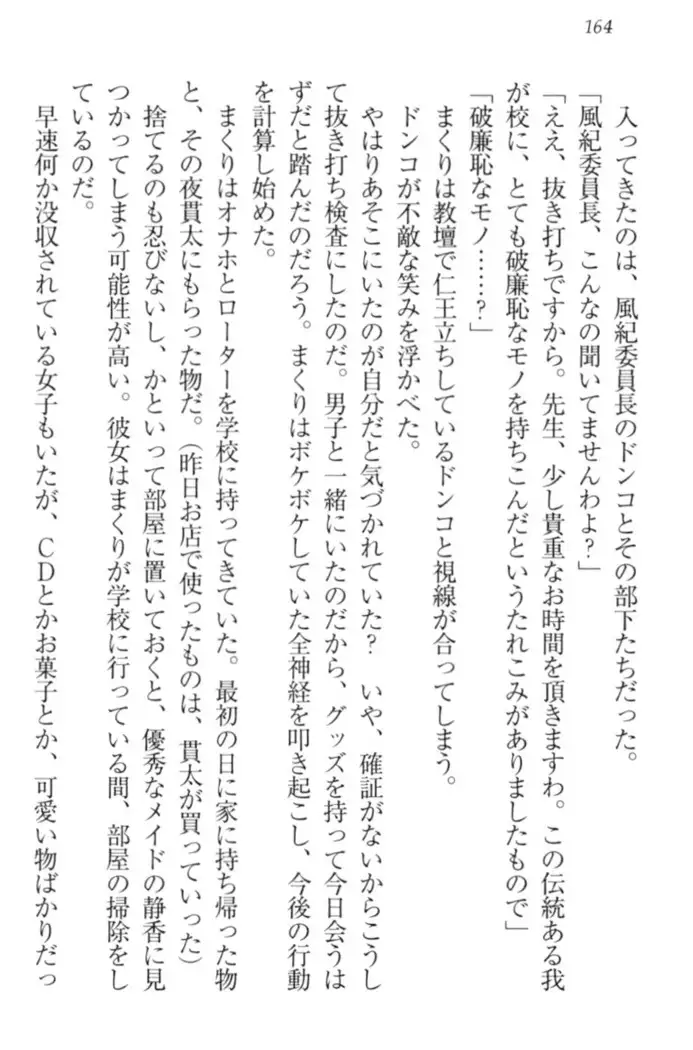 164
入ってきたのは、風紀委員長のドンコとその部下たちだった。
「風紀委員長、こんなの聞いてませんわよ?」
「ええ、抜き打ちですから。先生、少し貴重なお時間を頂きますわ。この伝統ある我
が校に、とても破廉恥なモノを持ちこんだというたれこみがありましたもので」
「破廉恥なモノ……?」
まくりは教壇で仁王立ちしているドンコと視線が合ってしまう。
ドンコが不敵な笑みを浮かべた。
やはりあそこにいたのが自分だと気づかれていた? いや、確証がないからこうし
て抜き打ち検査にしたのだ。男子と一緒にいたのだから、グッズを持って今日会うは
ずだと踏んだのだろう。まくりはボケボケしていた全神経を叩き起こし、今後の行動
を計算し始めた。
まくりはオナホとローターを学校に持ってきていた。最初の日に家に持ち帰った物
と、その夜貫太にもらった物だ。(昨日お店で使ったものは、貫太が買っていった)
捨てるのも忍びないし、かといって部屋に置いておくと、優秀なメイドの静香に見
つかってしまう可能性が高い。彼女はまくりが学校に行っている間、部屋の掃除をし
ているのだ。
早速何か没収されている女子もいたが、CDとかお菓子とか、可愛い物ばかりだっ